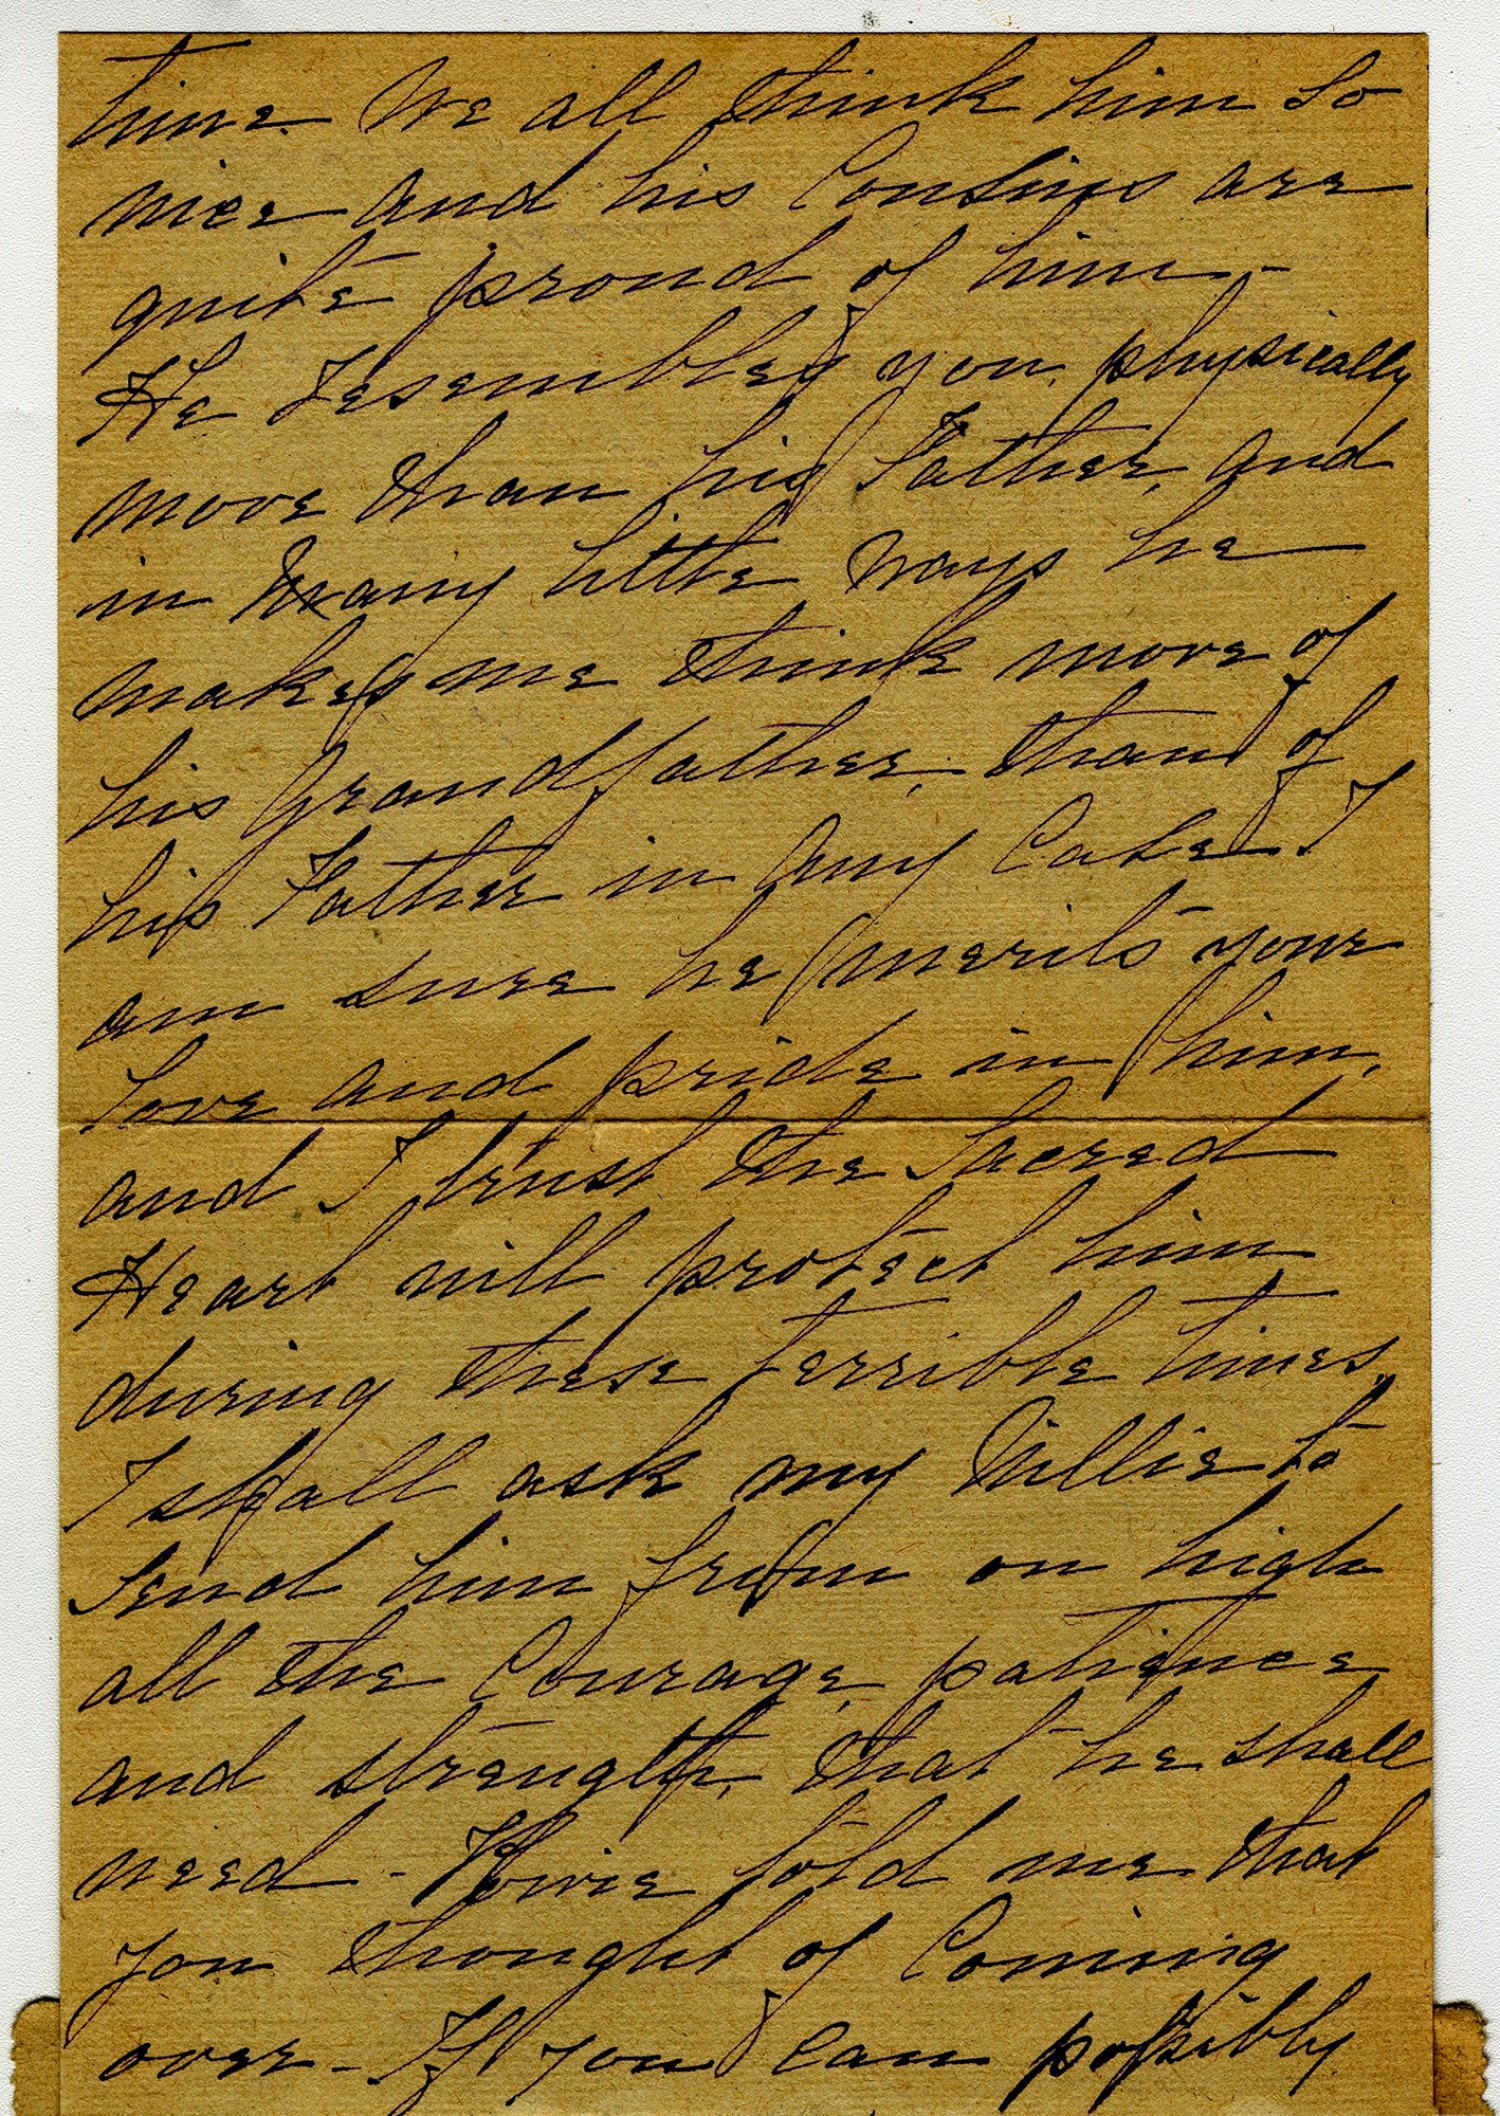 time. We all think him so
nice and his Cousins are
quite proud of him -
He resembles you physically
more than his Father, and
in many little ways he
makes me think more of
his Grandfather, than of
his Father in any Case. I
am sure he merits your
love and pride in him,
and I trust the Sacred
Heart will protect him
during these terrible times,
I shall ask my Willie to
send him from on high
all the Courage, patience
and strength, that he shall
need - told me that
you thought of Coming
over - If you can possibly